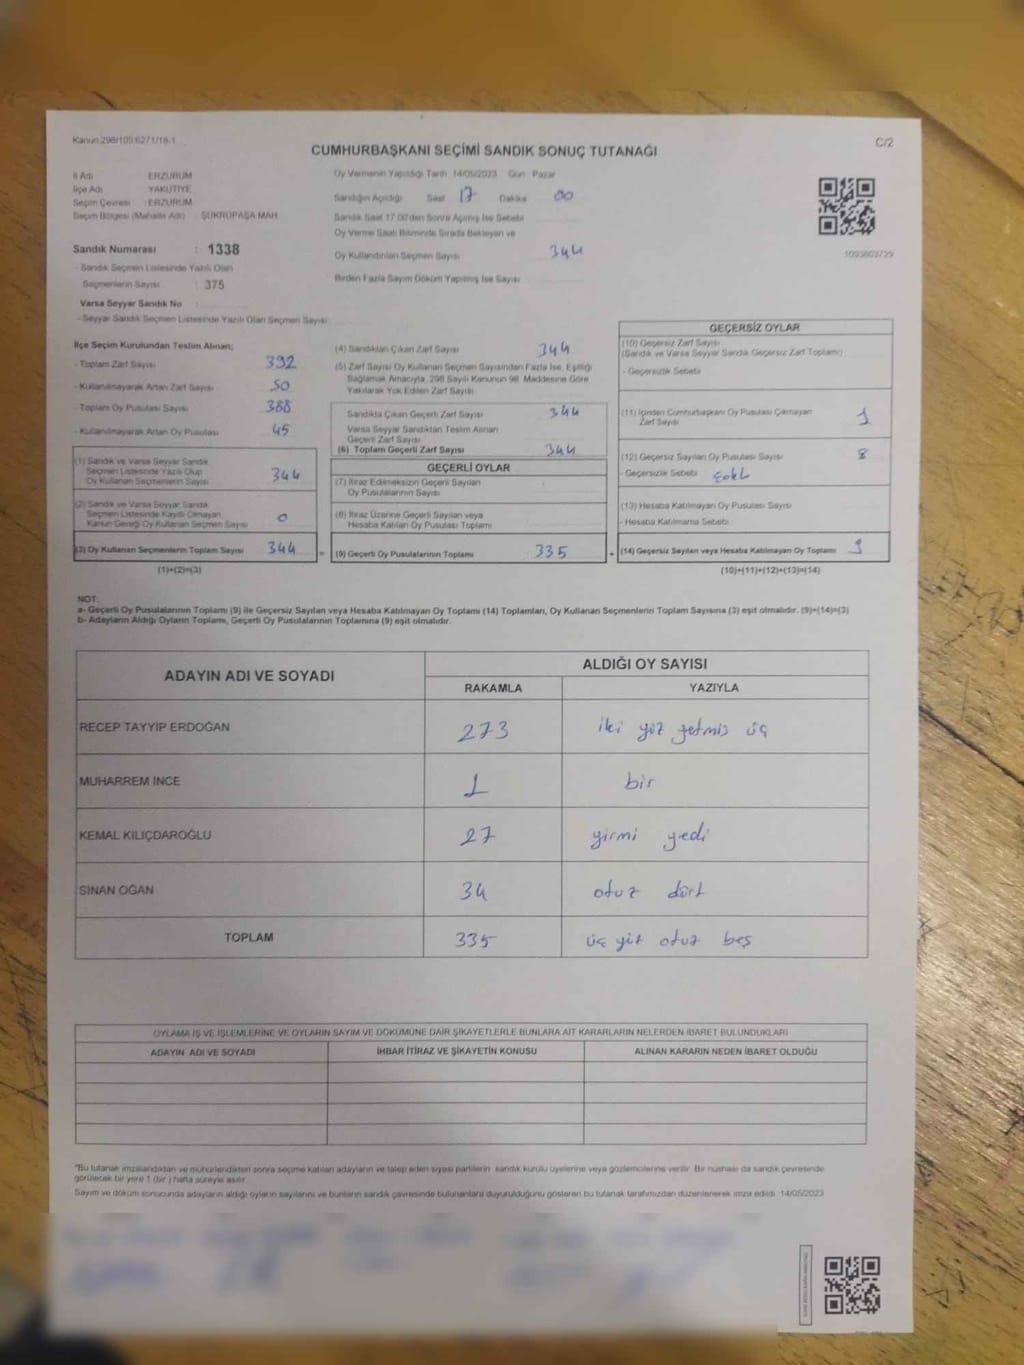 Kanun:298/105;6271/18-1
C/2
CUMHURBAŞKANI SEÇİMİ SANDIK SONUÇ TUTANAĞI
İl Adı : ERZURUM
İlçe Adı : YAKUTİYE
Seçim Çevresi : ERZURUM
Seçim Bölgesi (Mahalle Adı) : ŞÜKRÜPAŞA MAH.
Sandık Numarası : 1338
- Sandık Seçmen Listesinde Yazılı Olan
Seçmenlerin Sayısı : 375
Varsa Seyyar Sandık No :
- Seyyar Sandık Seçmen Listesinde Yazılı Olan Seçmen Sayısı:
Oy Vermenin Yapıldığı Tarih 14/05/2023 Gün : Pazar
Sandığın Açıldığı Saat 17 Dakika 00
Sandık Saat 17.00'den Sonra Açılmış İse Sebebi
Oy Verme Saati Bitiminde Sırada Bekleyen ve
Oy Kullandırılan Seçmen Sayısı 344
Birden Fazla Sayım Döküm Yapılmış İse Sayısı
1093603729
İlçe Seçim Kurulundan Teslim Alınan;
- Toplam Zarf Sayısı 392
- Kullanılmayarak Artan Zarf Sayısı 50
- Toplam Oy Pusulası Sayısı 388
- Kullanılmayarak Artan Oy Pusulası 45
(1) Sandık ve Varsa Seyyar Sandık
Seçmen Listesinde Yazılı Olup
Oy Kullanan Seçmenlerin Sayısı 344
(2) Sandık ve Varsa Seyyar Sandık
Seçmen Listesinde Kayıtlı Olmayan
Kanun Gereği Oy Kullanan Seçmen Sayısı 0
(3) Oy Kullanan Seçmenlerin Toplam Sayısı 344 =
(1)+(2)=(3)
(4) Sandıktan Çıkan Zarf Sayısı 344
(5) Zarf Sayısı Oy Kullanan Seçmen Sayısından Fazla İse, Eşitliği
Sağlamak Amacıyla, 298 Sayılı Kanunun 98. Maddesine Göre
Yakılarak Yok Edilen Zarf Sayısı
Sandıkta Çıkan Geçerli Zarf Sayısı 344
Varsa Seyyar Sandıktan Teslim Alınan
Geçerli Zarf Sayısı
(6) Toplam Geçerli Zarf Sayısı 344
GEÇERLİ OYLAR
(7) İtiraz Edilmeksizin Geçerli Sayılan
Oy Pusulalarının Sayısı
(8) İtiraz Üzerine Geçerli Sayılan veya
Hesaba Katılan Oy Pusulası Toplamı
(9) Geçerli Oy Pusulalarının Toplamı 335 +
GEÇERSİZ OYLAR
(10) Geçersiz Zarf Sayısı
(Sandık ve Varsa Seyyar Sandık Geçersiz Zarf Toplamı)
- Geçersizlik Sebebi
(11) İçinden Cumhurbaşkanı Oy Pusulası Çıkmayan
Zarf Sayısı 1
(12) Geçersiz Sayılan Oy Pusulası Sayısı 8
- Geçersizlik Sebebi
(13) Hesaba Katılmayan Oy Pusulası Sayısı
- Hesaba Katılmama Sebebi
(14) Geçersiz Sayılan veya Hesaba Katılmayan Oy Toplamı 9
(10)+(11)+(12)+(13)=(14)
NOT:
a- Geçerli Oy Pusulalarının Toplamı (9) ile Geçersiz Sayılan veya Hesaba Katılmayan Oy Toplamı (14) Toplamları, Oy Kullanan Seçmenlerin Toplam Sayısına (3) eşit olmalıdır. (9)+(14)=(3)
b- Adayların Aldığı Oyların Toplamı, Geçerli Oy Pusulalarının Toplamına (9) eşit olmalıdır.
ADAYIN ADI VE SOYADI
ALDIĞI OY SAYISI
RAKAMLA YAZIYLA
RECEP TAYYİP ERDOĞAN 273 iki yüz yetmiş üç
MUHARREM İNCE 1 bir
KEMAL KILIÇDAROĞLU 27 yirmi yedi
SİNAN OĞAN 34 otuz dört
TOPLAM 335 üç yüz otuz beş
OYLAMA İŞ VE İŞLEMLERİNE VE OYLARIN SAYIM VE DÖKÜMÜNE DAİR ŞİKAYETLERLE BUNLARA AİT KARARLARIN NELERDEN İBARET BULUNDUKLARI
ADAYIN ADI VE SOYADI İHBAR İTİRAZ VE ŞİKAYETİN KONUSU ALINAN KARARIN NEDEN İBARET OLDUĞU
*Bu tutanak imzalandıktan ve mühürlendikten sonra seçime katılan adayların ve talep eden siyasi partilerin sandık kurulu üyelerine veya gözlemcilerine verilir. Bir nüshası da sandık çevresinde
görülecek bir yere 1 (bir) hafta süreyle asılır.
Sayım ve döküm sonucunda adayların aldığı oyların sayılarını ve bunların sandık çevresinde bulunanlara duyurulduğunu gösteren bu tutanak tarafımızdan düzenlenerek imza edildi. 14/05/2023